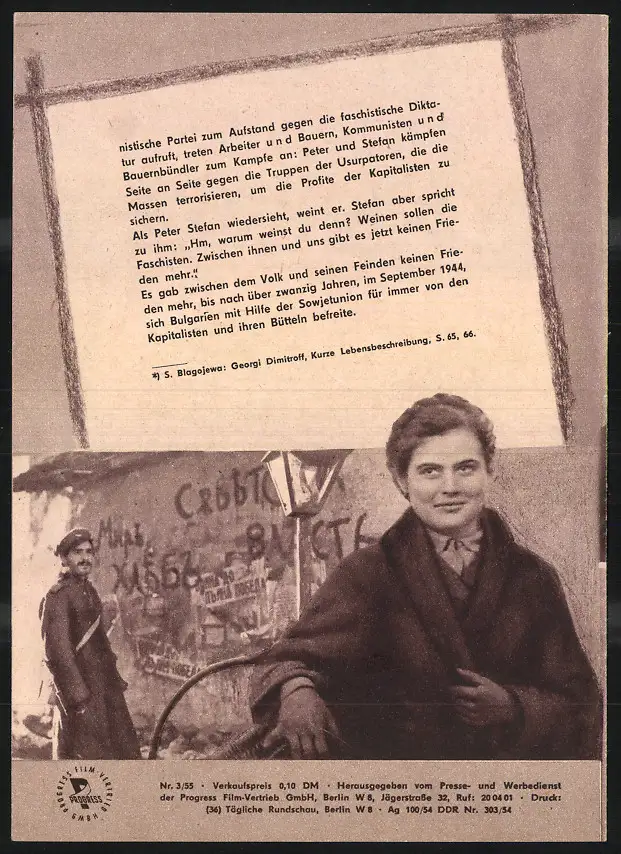 nistische Partei zum Aufstand gegen die faschistische Dikta-
tur aufruft, treten Arbeiter u n d Bauern, Kommunisten u n d
Bauernbündler zum Kampfe an: Peter und Stefan kämpfen
Seite an Seite gegen die Truppen der Usurpatoren, die die
Massen terrorisieren, um die Profite der Kapitalisten zu
sichern.
Als Peter Stefan wiedersieht, weint er. Stefan aber spricht
zu ihm: „Hm, warum weinst du denn? Weinen sollen die
Faschisten. Zwischen ihnen und uns gibt es jetzt keinen Frie-
den mehr.“
Es gab zwischen dem Volk und seinen Feinden keinen Frie-
den mehr, bis nach über zwanzig Jahren, im September 1944,
sich Bulgarien mit Hilfe der Sowjetunion für immer von den
Kapitalisten und ihren Bütteln befreite.
*) S. Blagojewa: Georgi Dimitroff, Kurze Lebensbeschreibung, S. 65, 66.
Миръ
ХЛѢБЪ
ВЛАСТЬ
ПОБЕДА
PROGRESS FILM-VERTRIEB GMBH
PROGRESS
Nr. 3/55 · Verkaufspreis 0,10 DM · Herausgegeben vom Presse- und Werbedienst
der Progress Film-Vertrieb GmbH, Berlin W 8, Jägerstraße 32, Ruf: 20 04 01 · Druck:
(36) Tägliche Rundschau, Berlin W 8 · Ag 100/54 DDR Nr. 303/54